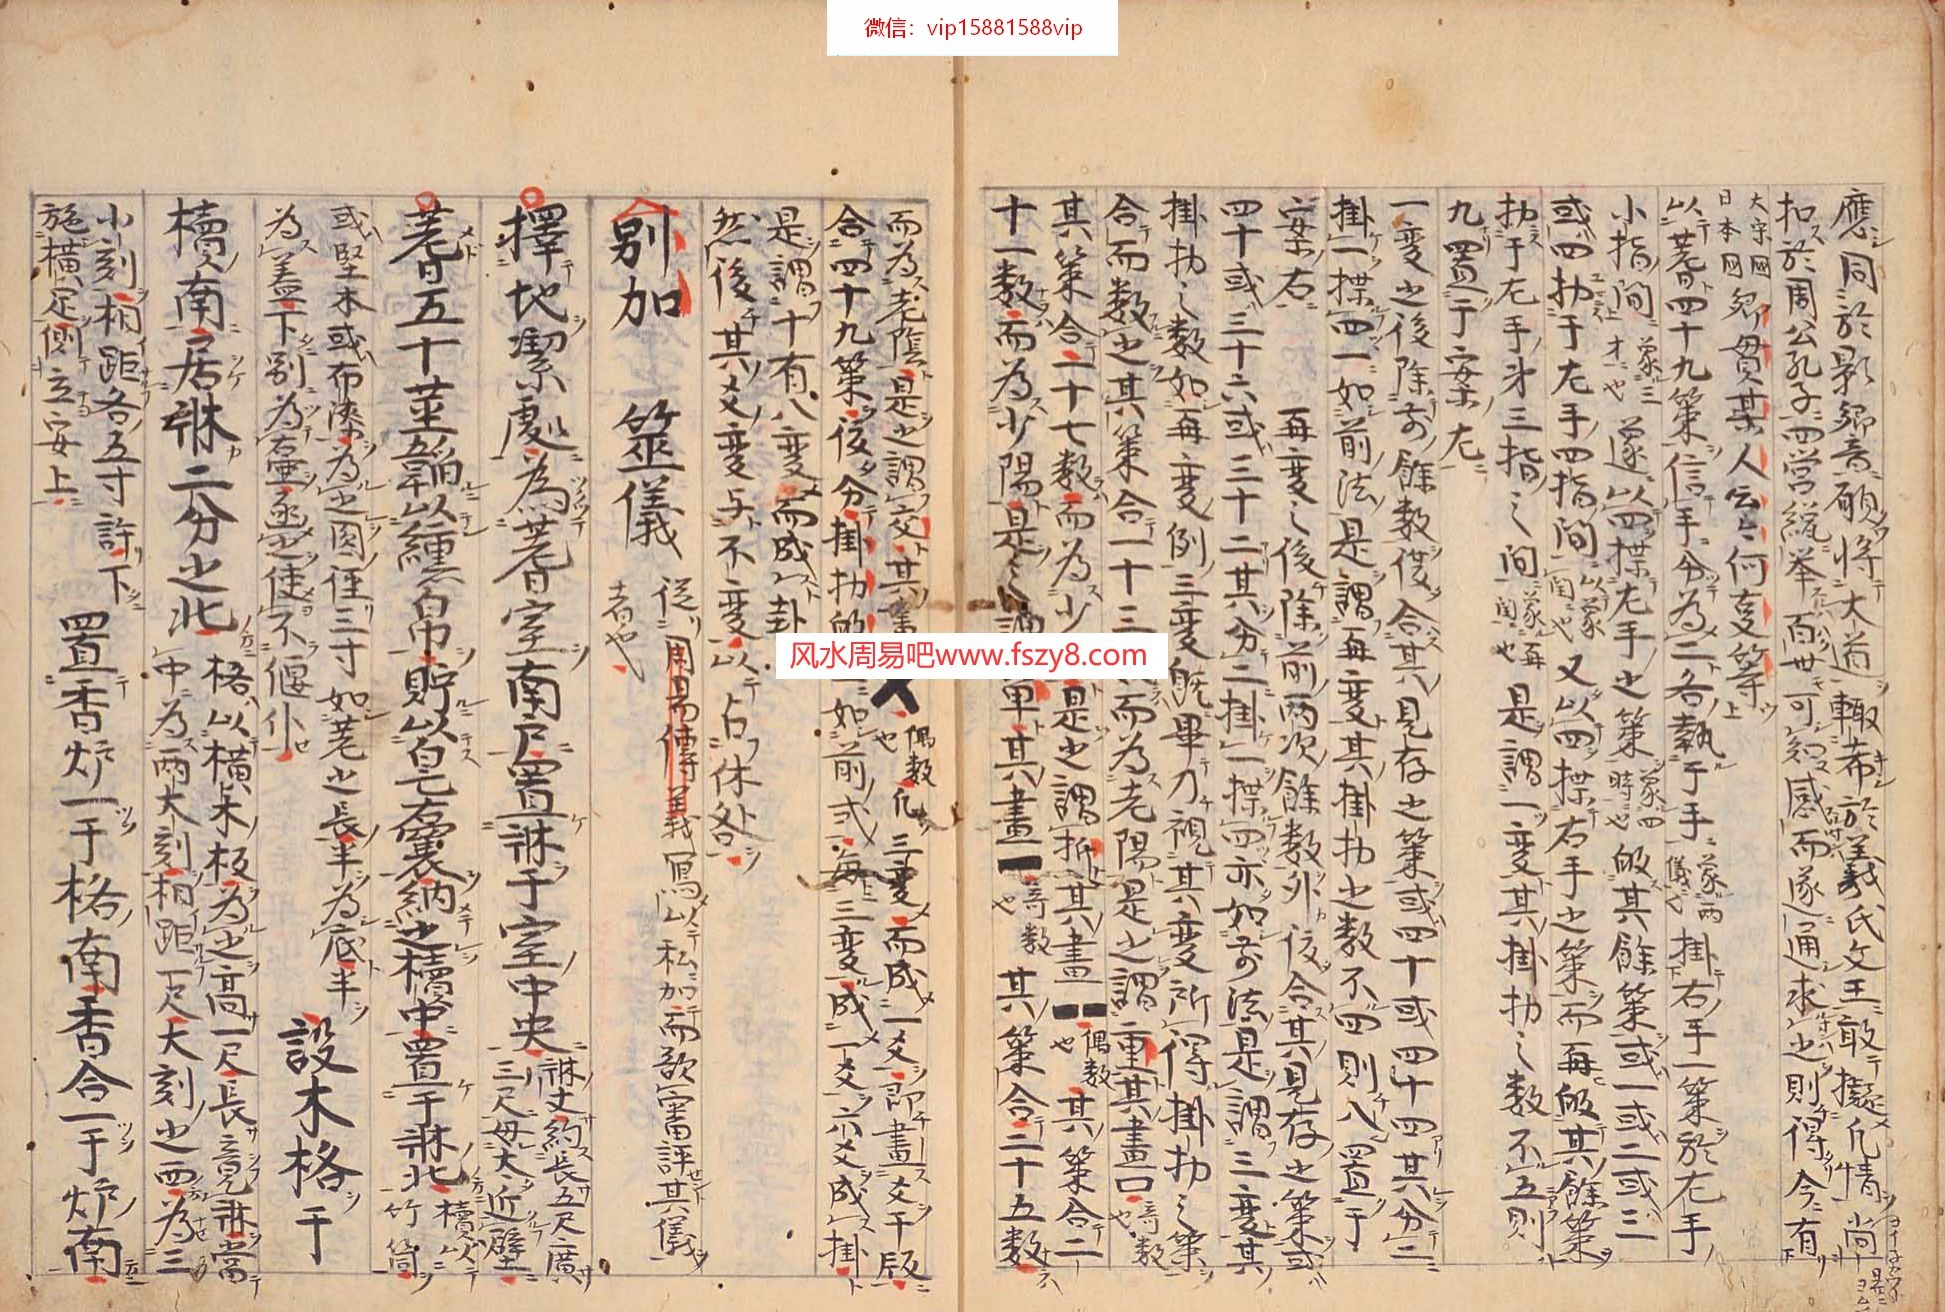 微信：vip15881588vip
應同於影響音願將大道輙希於羲氏文王敢擬凡情尚
扣於周公孔子四営縦挙百世可知感而遂通求之則得今有
大宋國
日本國
郷貫某人云々何支等
以蓍四十九策信手分為二各執于手
象両
儀也
掛右手一策於左手
小指間
象三
才也
遂以四揲左手之策
象四
時也
皈其餘策或一或二或三
或四扐于左手四指間
以象
閏也
又以四揲右手之策而再皈其餘策
扐于左手才三指之間
象再
閏也
是謂一変其掛扐之数不五則
九置于案左
一変之後除前餘数復合其見存之策或四十或四十四其分二
掛一揲四一如前法是謂再変其掛扐之数不四則八置于
案右 再変之後除前両次餘数外復合其見存之策或
四十或三十六或三十二其分二掛一揲四亦如前法是謂三変其
掛扐之数如再変例三変既畢乃視其変所得掛扐之策
合而数之其策合一十三而為老陽是之謂重其畫口
奇数
也
其策合二
十七数而為少是之謂拆其畫
偶数
也
其策合二
十一数而為少陽是之謂単其畫
奇数
也
其策合二十五数
而為老陰是之謂交其畫
偶数
也
凡三変而成一爻即畫爻于版
合四十九策復分掛扐皈一如前式毎三変成一爻六爻成掛
是謂十有八変而成卦
然後其爻変与不変以占休咎
別加 筮儀
従周易傳義寫以私加而欲審詳其儀
者也
擇地潔處為蓍室南戸置牀于室中央
牀大約長五尺廣
三尺毋大近壁
蓍五十莖韜以纁帛貯以皂囊納之櫝中置于牀北
櫝以
竹筒
或堅木或布漆為之圓徑三寸如蓍之長半為底半
為蓋下別為臺函之使不偃仆
設木格于
櫝南居牀二分之北
格以横木板為之高一尺長竟牀當
中為両大刻相距一尺大刻之西為三
小刻相距各五寸許下
施横足側立安上
置香炉一于格南香合一于炉南
风水周易吧www.fszy8.com